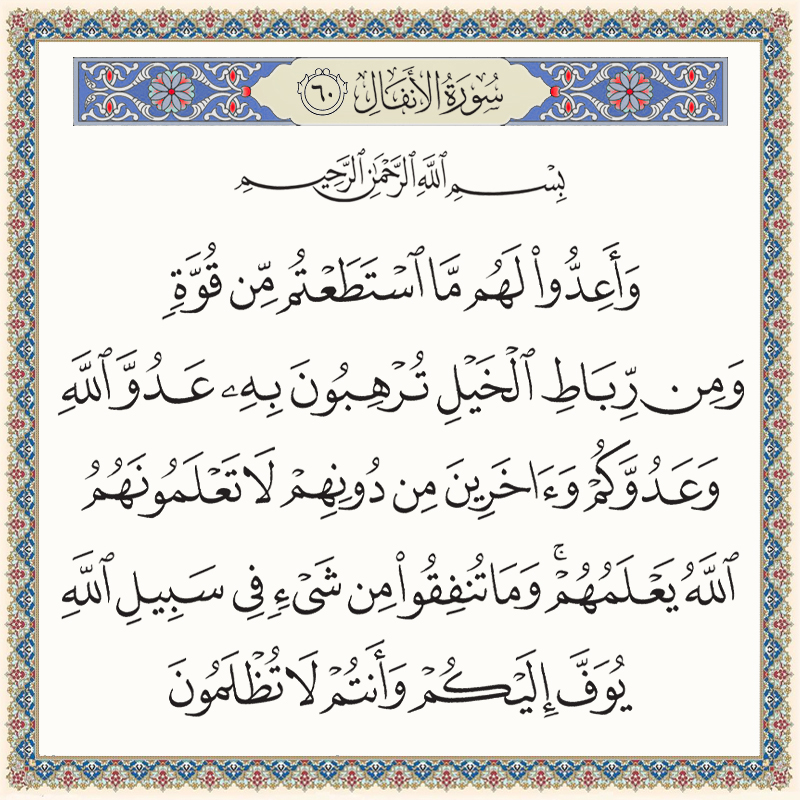 سُورَةُ الأَنفَال ٦٠
بِسْمِ ٱللَّهِ ٱلرَّحْمَٰنِ ٱلرَّحِيمِ
وَأَعِدُّوا۟ لَهُم مَّا ٱسْتَطَعْتُم مِّن قُوَّةٍ
وَمِن رِّبَاطِ ٱلْخَيْلِ تُرْهِبُونَ بِهِۦ عَدُوَّ ٱللَّهِ
وَعَدُوَّكُمْ وَءَاخَرِينَ مِن دُونِهِمْ لَا تَعْلَمُونَهُمُ
ٱللَّهُ يَعْلَمُهُمْ ۚ وَمَا تُنفِقُوا۟ مِن شَىْءٍ فِى سَبِيلِ ٱللَّهِ
يُوَفَّ إِلَيْكُمْ وَأَنتُمْ لَا تُظْلَمُونَ